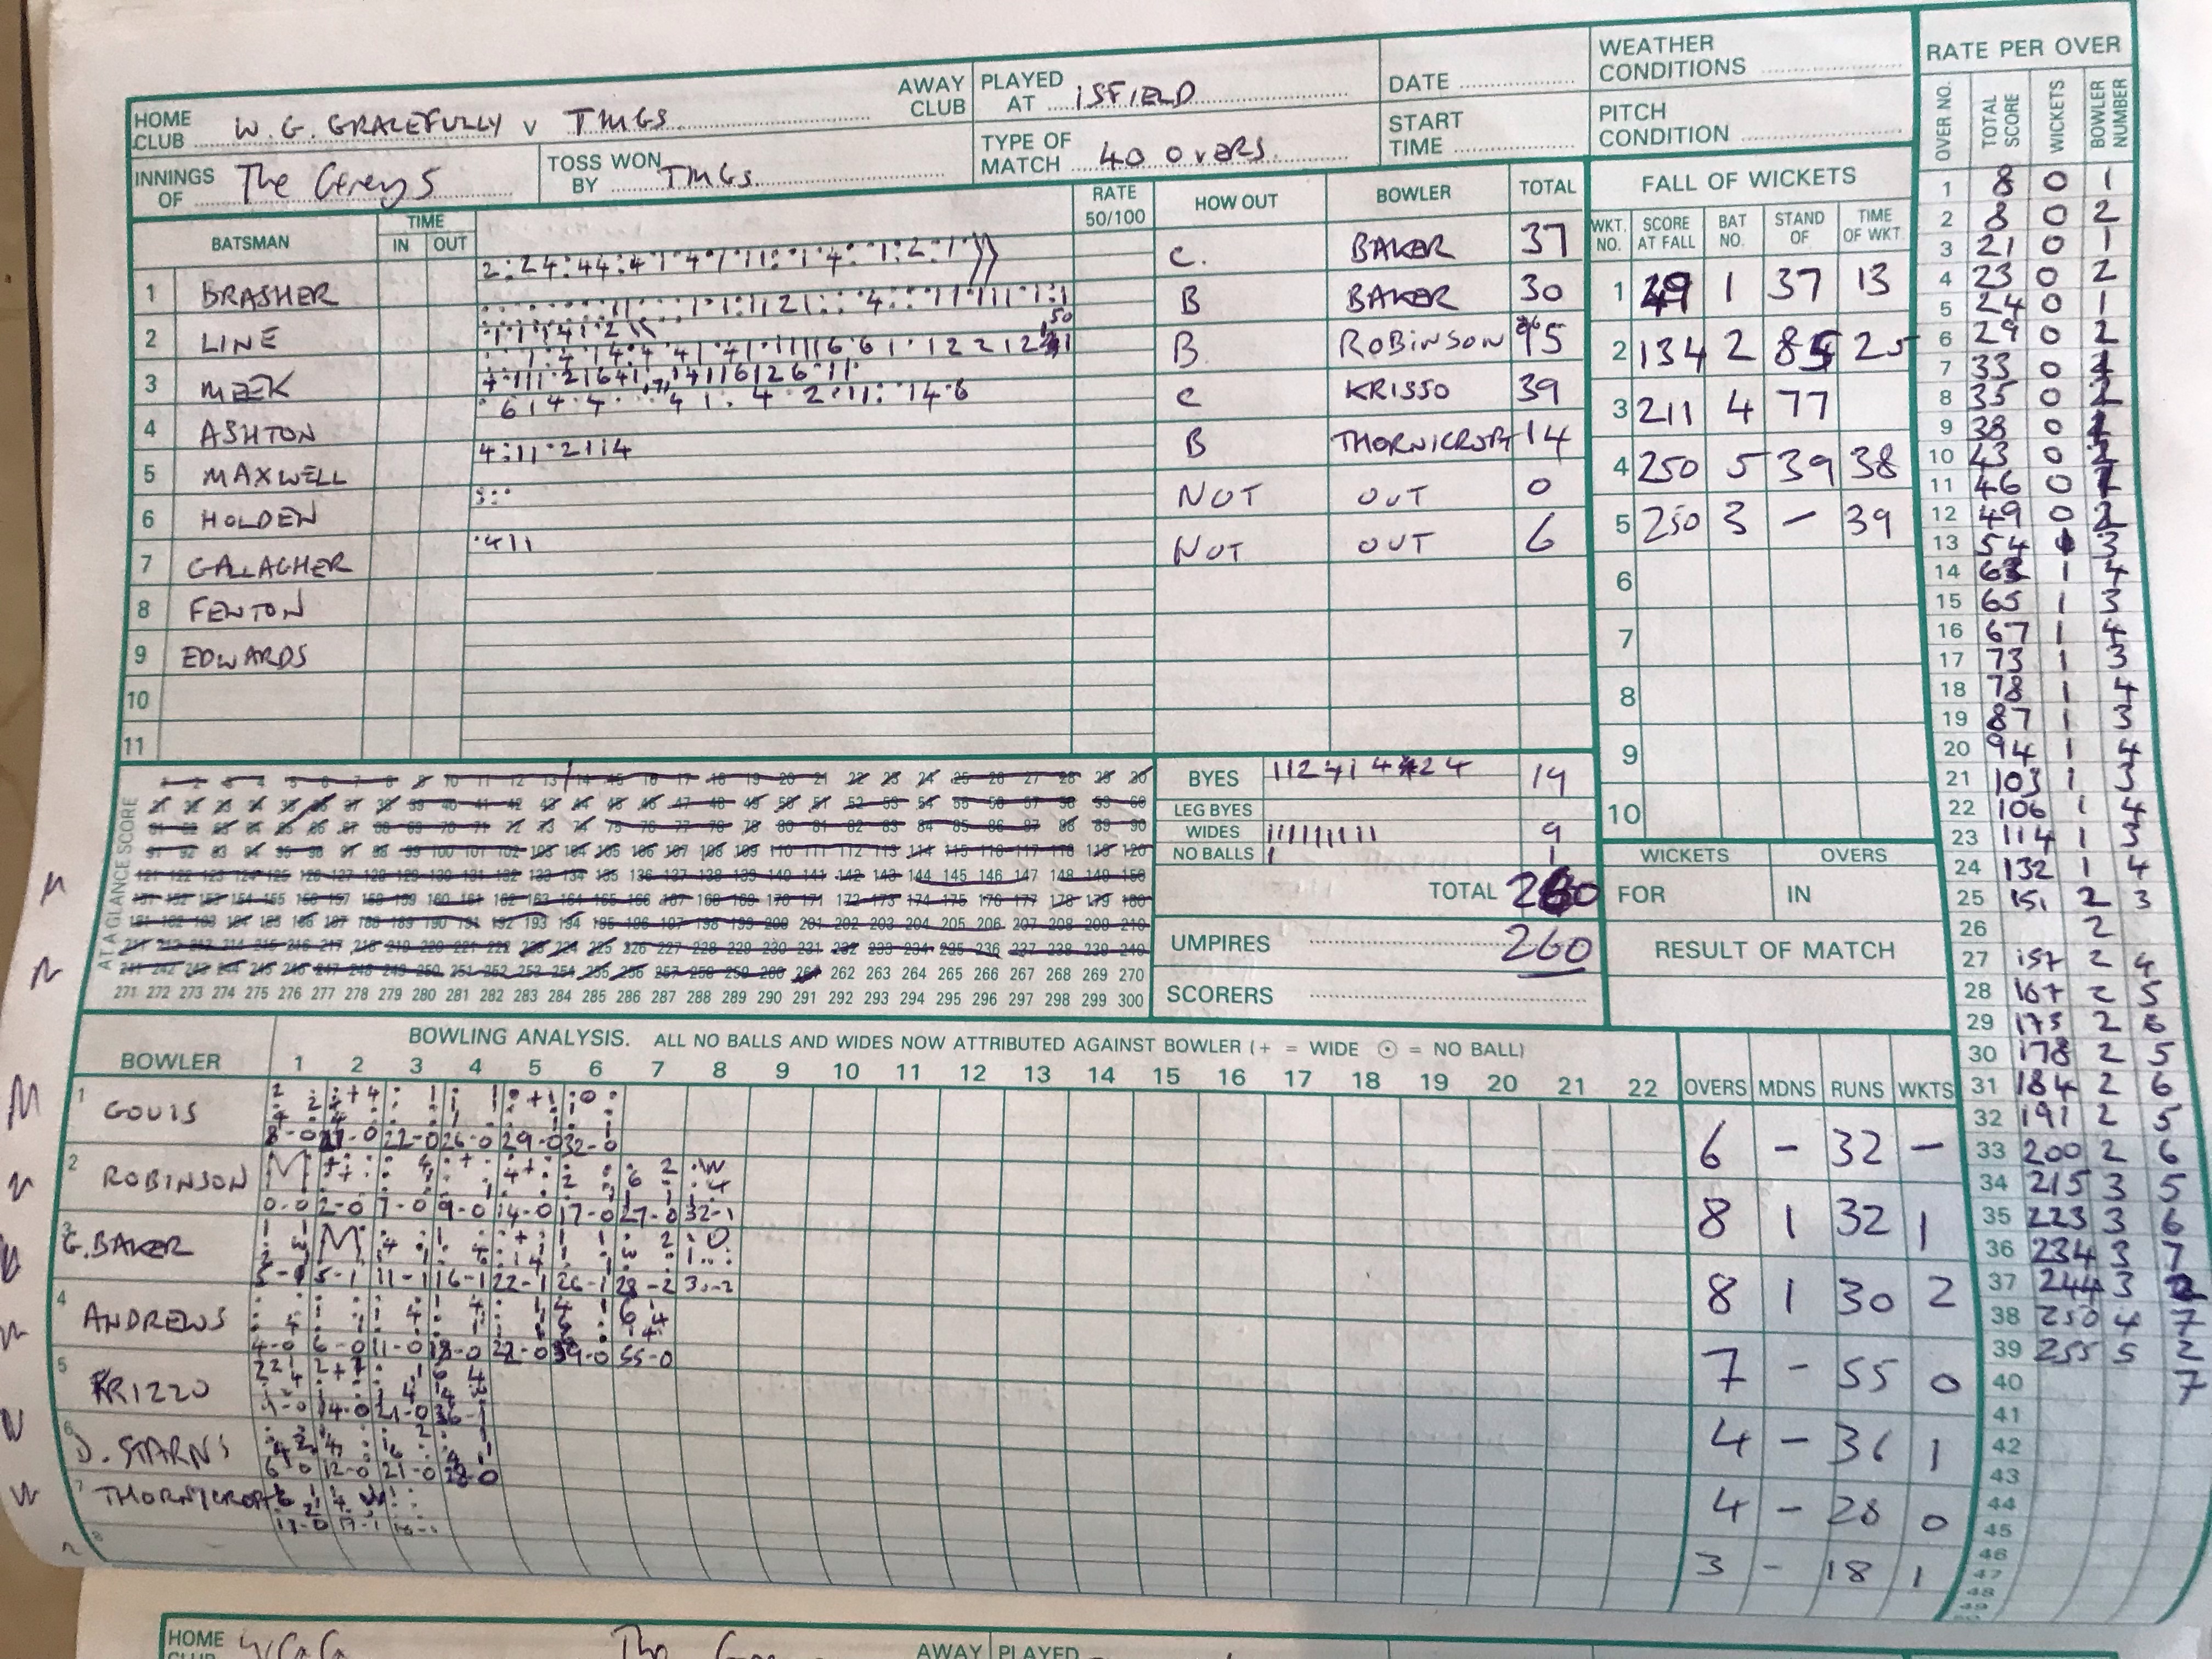 HOME CLUB W.G. GRACEFULLY v TMGs AWAY CLUB
PLAYED AT ISFIELD
DATE
WEATHER CONDITIONS
RATE PER OVER
INNINGS OF The Greys
TOSS WON BY TMGs
TYPE OF MATCH 40 OVERS
START TIME
PITCH CONDITION
OVER NO. TOTAL SCORE WICKETS BOWLER NUMBER
BATSMAN TIME IN OUT RATE 50/100 HOW OUT BOWLER TOTAL
1 BRASHER c. BAKER 37
2 LINE B BAKER 30
3 MEEK B. ROBINSON 95
4 ASHTON c KRISSO 39
5 MAXWELL 4:11·2114 B THORNICROFT 14
6 HOLDEN NOT OUT 0
7 GALLAGHER ·411 NOT OUT 6
8 FENTON
9 EDWARDS
10
11
FALL OF WICKETS
WKT. NO. SCORE AT FALL BAT NO. STAND OF TIME OF WKT.
1 49 1 37 13
2 134 2 85 25
3 211 4 77
4 250 5 39 38
5 250 3 – 39
6
7
8
9
10
1 8 0 1
2 8 0 2
3 21 0 1
4 23 0 2
5 24 0 1
6 29 0 2
7 33 0 1
8 35 0 2
9 38 0 1
10 43 0 2
11 46 0 1
12 49 0 2
13 54 1 3
14 63 1 4
15 65 1 3
16 67 1 4
17 73 1 3
18 78 1 4
19 87 1 3
20 94 1 4
21 103 1 3
22 106 1 4
23 114 1 3
24 132 1 4
25 151 2 3
26 2
27 157 2 4
28 167 2 5
29 173 2 6
30 178 2 5
31 184 2 6
32 191 2 5
33 200 2 6
34 215 3 5
35 223 3 6
36 234 3 7
37 244 3 2
38 250 4 7
39 255 5 2
40 7
41
42
43
44
45
46
47
48
49
AT A GLANCE SCORE
1 2 3 4 5 6 7 8 9 10 11 12 13 14 15 16 17 18 19 20 21 22 23 24 25 26 27 28 29 30
31 32 33 34 35 36 37 38 39 40 41 42 43 44 45 46 47 48 49 50 51 52 53 54 55 56 57 58 59 60
61 62 63 64 65 66 67 68 69 70 71 72 73 74 75 76 77 78 79 80 81 82 83 84 85 86 87 88 89 90
91 92 93 94 95 96 97 98 99 100 101 102 103 104 105 106 107 108 109 110 111 112 113 114 115 116 117 118 119 120
121 122 123 124 125 126 127 128 129 130 131 132 133 134 135 136 137 138 139 140 141 142 143 144 145 146 147 148 149 150
151 152 153 154 155 156 157 158 159 160 161 162 163 164 165 166 167 168 169 170 171 172 173 174 175 176 177 178 179 180
181 182 183 184 185 186 187 188 189 190 191 192 193 194 195 196 197 198 199 200 201 202 203 204 205 206 207 208 209 210
211 212 213 214 215 216 217 218 219 220 221 222 223 224 225 226 227 228 229 230 231 232 233 234 235 236 237 238 239 240
241 242 243 244 245 246 247 248 249 250 251 252 253 254 255 256 257 258 259 260 261 262 263 264 265 266 267 268 269 270
271 272 273 274 275 276 277 278 279 280 281 282 283 284 285 286 287 288 289 290 291 292 293 294 295 296 297 298 299 300
BYES 19
LEG BYES
WIDES 9
NO BALLS 1 1
TOTAL 260
UMPIRES 260
SCORERS
WICKETS OVERS
FOR IN
RESULT OF MATCH
BOWLING ANALYSIS. ALL NO BALLS AND WIDES NOW ATTRIBUTED AGAINST BOWLER (+ = WIDE ⊙ = NO BALL)
BOWLER 1 2 3 4 5 6 7 8 9 10 11 12 13 14 15 16 17 18 19 20 21 22 OVERS MDNS RUNS WKTS
1 GOUIS 8-0 21-0 22-0 26-0 29-0 32-0 6 – 32 –
2 ROBINSON 0-0 2-0 7-0 9-0 14-0 17-0 27-0 32-1 8 1 32 1
3 G. BAKER 5-1 5-1 11-1 16-1 22-1 26-1 28-2 30-2 8 1 30 2
4 ANDREWS 4-0 6-0 11-0 18-0 22-0 39-0 55-0 7 – 55 0
5 KRIZZO 14-0 21-0 36-1 4 – 36 1
6 D. STARNS 6-0 12-0 21-0 28-0 4 – 28 0
7 THORNYCROFT 13-0 17-1 3 – 18 1
8
HOME CLUB
AWAY PLAYED